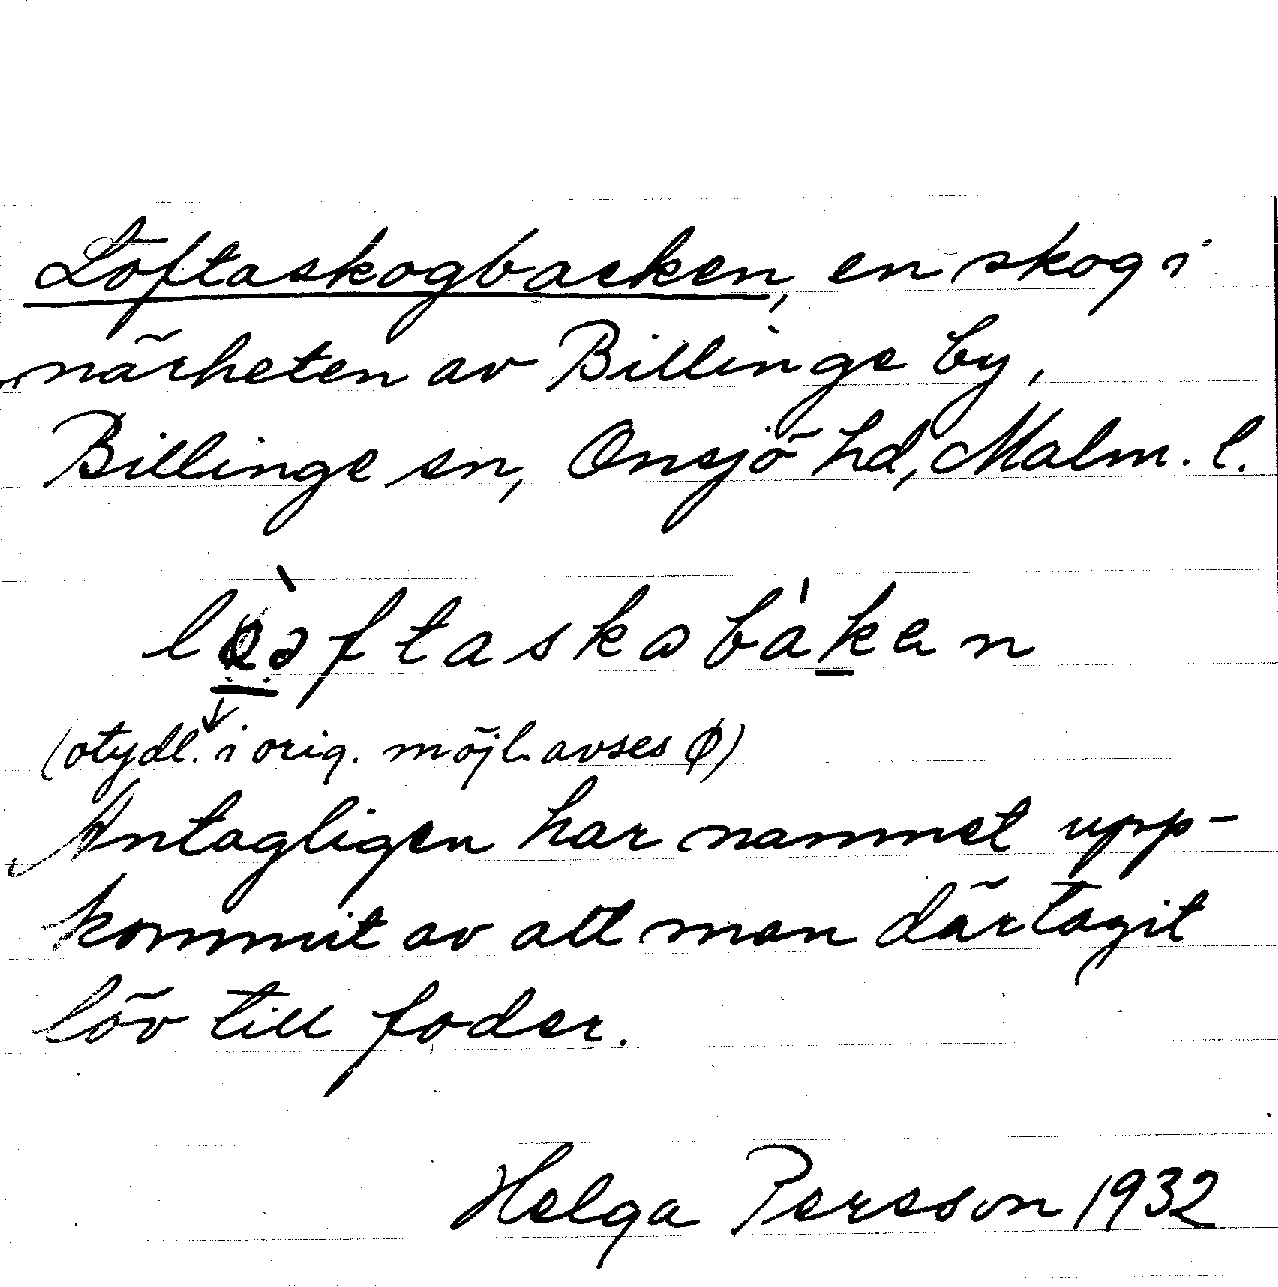 Löftaskogbacken, en skog i
närheten av Billinge by,
Billinge sn, Onsjö hd, Malm. l.
(otydl. i orig. möjl. avses ø)
Antagligen har namnet upp-
kommit av att man där tagit
löv till foder.
Helga Persson 1932